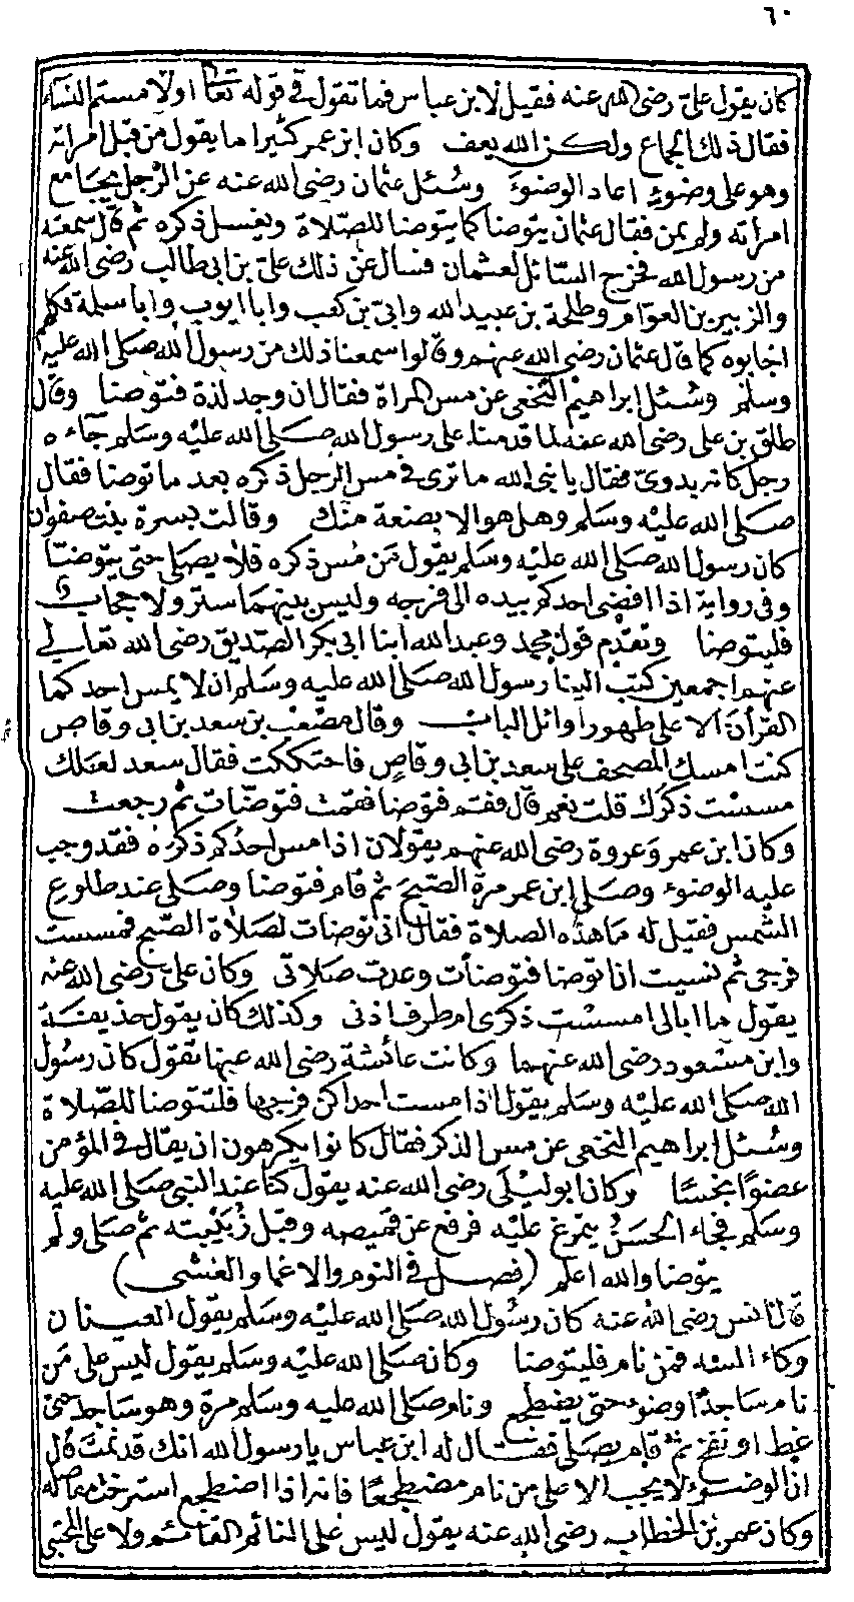 ٦٠
كان يقول على رضى الله عنه فقيل لابن عباس فما تقول فى قوله تعالى اولامستم النساء
فقال ذلك الجماع ولكن الله يعف وكان ابن عمر كثيرا ما يقول من قبل امراته
وهو على وضوء اعاد الوضوء وسئل عثمان رضى الله عنه عن الرجل يجامع
امراته ولم يمن فقال عثمان يتوضا كما يتوضا للصلاة ويغسل ذكره ثم قال سمعته
من رسول الله فخرج السائل لعثمان فسال عن ذلك على بن ابى طالب رضى الله عنه
والزبير بن العوام وطلحة بن عبيد الله وابى بن كعب وابا ايوب وابا سلمة فكلهم
اجابوه كما قال عثمان رضى الله عنهم وقالوا سمعنا ذلك من رسول الله صلى الله عليه
وسلم وسئل ابراهيم النخعى عن مس المراة فقال ان وجد لذة فتوضا وقال
طلق بن على رضى الله عنه لما قدمنا على رسول الله صلى الله عليه وسلم جاءه
رجل كانه بدوى فقال يا نبى الله ما ترى فى مس الرجل ذكره بعد ما توضا فقال
صلى الله عليه وسلم وهل هو الا بضعة منك وقالت بسرة بنت صفوان
كان رسول الله صلى الله عليه وسلم يقول من مس ذكره فلا يصلى حتى يتوضا
وفى رواية اذا افضى احدكم بيده الى فرجه وليس بينهما ستر ولا حجاب
فليتوضا وتقدم قول محمد وعبد الله ابنا ابى بكر الصديق رضى الله تعالى
عنهم اجمعين كتب الينا رسول الله صلى الله عليه وسلم ان لا يمس احدكما
القرآن الا على طهور اوائل الباب وقال مصعب بن سعد بن ابى وقاص
كنت امسك المصحف على سعد بن ابى وقاص فاحتككت فقال سعد لعلك
مسست ذكرك قلت نعم قال فقم فتوضا فقمت فتوضات ثم رجعت
وكان ابن عمر وعروة رضى الله عنهم يقولان اذا مس احدكم ذكره فقد وجب
عليه الوضوء وصلى ابن عمر مرة الصبح ثم قام فتوضا وصلى عند طلوع
الشمس فقيل له ما هذه الصلاة فقال انى توضات لصلاة الصبح فمسست
فرجى ثم نسيت ان اتوضا فتوضات وعدت صلاتى وكان على رضى الله عنه
يقول ما ابالى امسست ذكرى ام طرف اذنى وكذلك كان يقول حذيفة
وابن مسعود رضى الله عنهما وكانت عائشة رضى الله عنها تقول كان رسول
الله صلى الله عليه وسلم يقول اذا مست احداكن فرجها فلتتوضا للصلاة
وسئل ابراهيم النخعى عن مس الذكر فقال كانوا يكرهون ان يقال فى المؤمن
عضوا نجسا وكان ابو ليلى رضى الله عنه يقول كنا عند النبى صلى الله عليه
وسلم فجاء الحسن يتمرغ عليه فرفع عن قميصه وقبل زبيبته ثم صلى ولم
يتوضا والله اعلم (فصل فى النوم والاغما والغشى)
قال انس رضى الله عنه كان رسول الله صلى الله عليه وسلم يقول العينان
وكاء السه فمن نام فليتوضا وكان صلى الله عليه وسلم يقول ليس على من
نام ساجدا وضوء حتى يضطجع ونام صلى الله عليه وسلم مرة وهو ساجد حتى
غط او نفخ ثم قام يصلى فقال له ابن عباس يا رسول الله انك قد نمت قال
ان الوضوء لا يجب الا على من نام مضطجعا فانه اذا اضطجع استرخت مفاصله
وكان عمر بن الخطاب رضى الله عنه يقول ليس على النائم القائم ولا على المحتبى